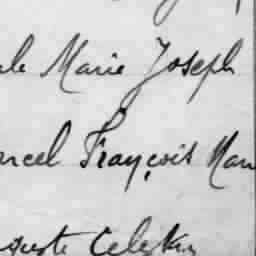 Marie Joseph
rcel François Mar
guste Celestin